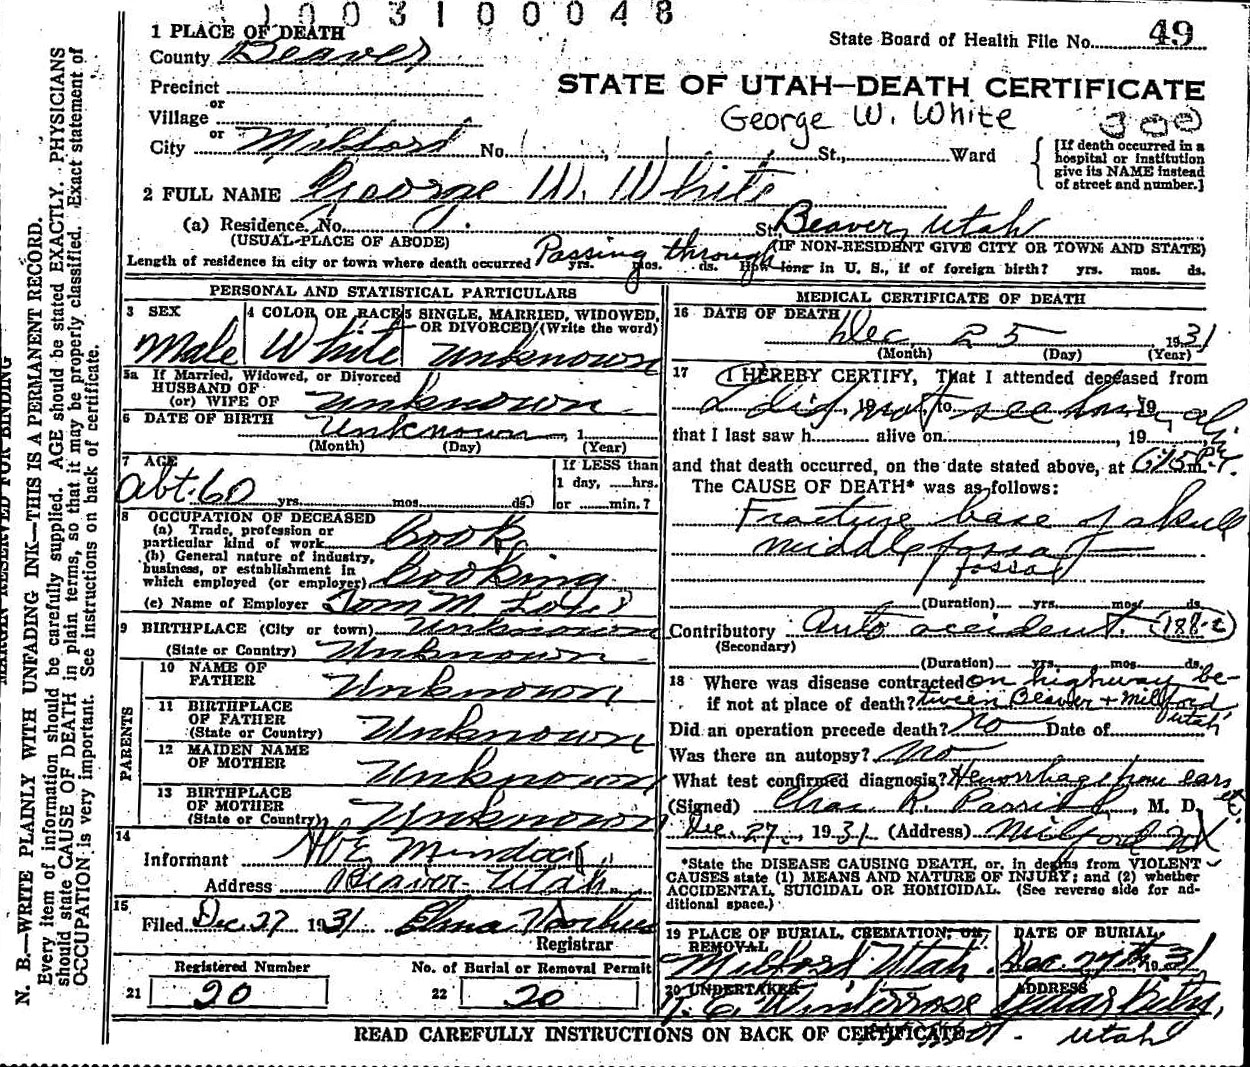 1003100048
1 PLACE OF DEATH
State Board of Health File No. 49
County Beaver
STATE OF UTAH—DEATH CERTIFICATE
Precinct
or
Village
George W. White
or
City Milford No. , St., Ward
[If death occurred in a hospital or institution give its NAME instead of street and number.]
2 FULL NAME George W. White
(a) Residence. No. St. Beaver, Utah
(USUAL PLACE OF ABODE) (IF NON-RESIDENT GIVE CITY OR TOWN AND STATE)
Length of residence in city or town where death occurred Passing through yrs. mos. ds. How long in U. S., if of foreign birth? yrs. mos. ds.
PERSONAL AND STATISTICAL PARTICULARS
3 SEX
Male
4 COLOR OR RACE
White
5 SINGLE, MARRIED, WIDOWED, OR DIVORCED (Write the word)
Unknown
5a If Married, Widowed, or Divorced
HUSBAND OF
(or) WIFE OF Unknown
6 DATE OF BIRTH Unknown, 1
(Month) (Day) (Year)
7 AGE
abt. 60 yrs. mos. ds.
If LESS than
1 day, hrs.
or min.?
8 OCCUPATION OF DECEASED
(a) Trade, profession or
particular kind of work Cook
(b) General nature of industry,
business, or establishment in
which employed (or employer) Cooking
(c) Name of Employer Tom M.
9 BIRTHPLACE (City or town) Unknown
(State or Country) Unknown
PARENTS
10 NAME OF
FATHER Unknown
11 BIRTHPLACE
OF FATHER
(State or Country) Unknown
12 MAIDEN NAME
OF MOTHER Unknown
13 BIRTHPLACE
OF MOTHER
(State or Country) Unknown
14
Informant Murdock
Address Beaver Utah
15
Filed Dec. 27 1931 Elma Voorhees
Registrar
Registered Number
21 20
No. of Burial or Removal Permit
22 20
MEDICAL CERTIFICATE OF DEATH
16 DATE OF DEATH
Dec 25 1931
(Month) (Day) (Year)
17 I HEREBY CERTIFY, That I attended deceased from
I did not see him, 19 to 19
that I last saw h alive on , 19
and that death occurred, on the date stated above, at m.
The CAUSE OF DEATH* was as follows:
Fracture base of skull
middle fossa
fossa
(Duration) yrs. mos. ds.
Contributory Auto accident.
(Secondary)
(Duration) yrs. mos. ds.
18 Where was disease contracted on highway be-
if not at place of death? tween Beaver + Milford
Utah
Did an operation precede death? No Date of
Was there an autopsy? No
What test confirmed diagnosis? Hemorrhage from ears etc.
(Signed) Chas. R. Parrish, M. D.
Dec. 27, 1931 (Address) Milford Ut
*State the DISEASE CAUSING DEATH, or, in deaths from VIOLENT
CAUSES state (1) MEANS AND NATURE OF INJURY; and (2) whether
ACCIDENTAL, SUICIDAL OR HOMICIDAL. (See reverse side for ad-
ditional space.)
19 PLACE OF BURIAL, CREMATION, OR,
REMOVAL
Milford Utah
DATE OF BURIAL
Dec. 27th 1931
20 UNDERTAKER
Winterrose
ADDRESS
Cedar City,
Utah
READ CAREFULLY INSTRUCTIONS ON BACK OF CERTIFICATE
MARGIN RESERVED FOR BINDING
N. B.—WRITE PLAINLY WITH UNFADING INK—THIS IS A PERMANENT RECORD.
Every item of information should be carefully supplied. AGE should be stated EXACTLY. PHYSICIANS
should state CAUSE OF DEATH in plain terms, so that it may be properly classified. Exact statement of
OCCUPATION is very important. See instructions on back of certificate.